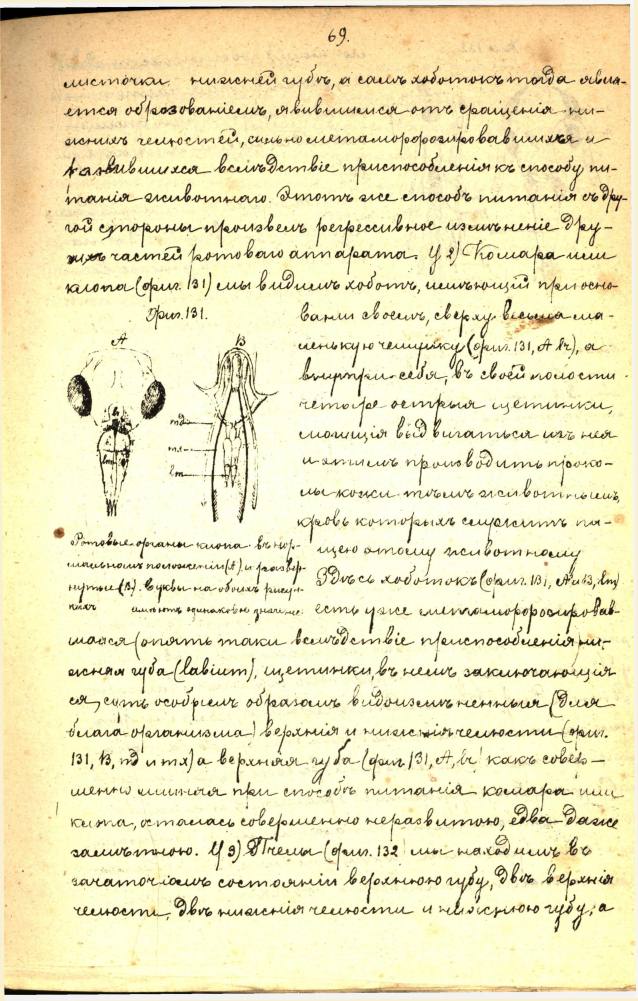 69.
листочки нижней губы, а самъ хоботокъ тогда явля-
ется образованіемъ, явившимся отъ сращенія ни-
жнихъ челюстей, сильно метаморфозировавшихся и
развившихся вслѣдствіе приспособленія къ способу пи-
танія животнаго. Этотъ же способъ питанія съ дру-
гой стороны произвелъ регрессивное измѣненіе дру-
гихъ частей ротоваго аппарата. У 2) Комара или
клопа (фиг. 131) мы видимъ хоботъ, имѣющій при осно-
Фиг. 131.
ваніи своемъ, сверху весьма ма-
ленькую чешуйку (фиг. 131, A lr), а
внутри себя, въ своей полости
четыре острыя щетинки,
могущія выдвигаться изъ нея
и этимъ производить проко-
лы кожи тѣмъ животнымъ,
кровь которыхъ служитъ пи-
щею этому животному
Здѣсь хоботокъ (фиг. 131, A и B, lm)
есть уже метаморфозировав-
A
B
md
mx
lm
Ротовые органы клопа въ нор-
мальномъ положеніи (A) и развер-
нутые (B). Буквы на обоихъ рисун-
кахъ имѣютъ одинаковое значеніе.
шаяся (опять таки вслѣдствіе приспособленія ни-
жняя губа (labium), щетинки, въ немъ заключающія
ся, суть особымъ образомъ видоизмѣненныя (для
блага организма) верхнія и нижнія челюсти (фиг.
131, B, md и mx) а верхняя губа (фиг 131, A, lr) какъ совер-
шенно лишняя при способѣ питанія комара или
клопа, осталась совершенно неразвитою, едва даже
замѣтною. У 3) Пчелы (фиг. 132 мы находимъ въ
зачаточномъ состояніи верхнюю губу, двѣ верхнія
челюсти, двѣ нижнія челюсти и нижнюю губу; а